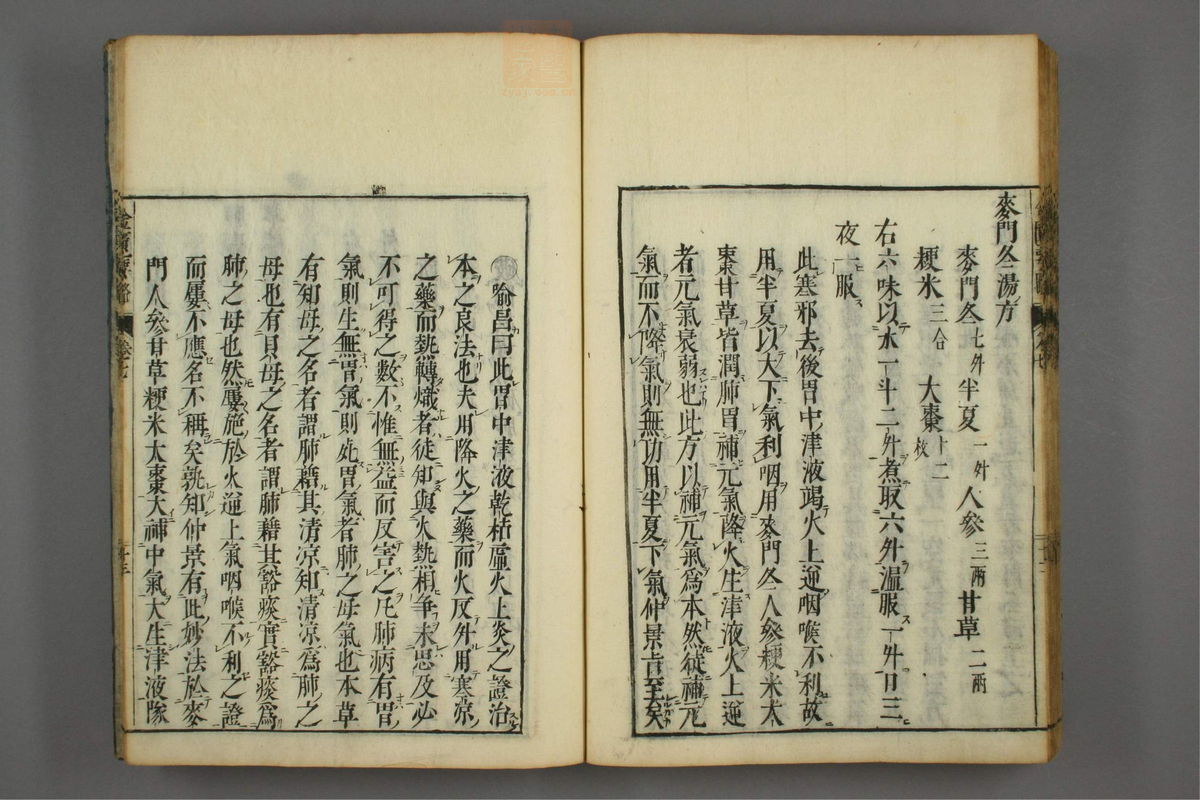 麥門冬湯方
麥門冬七升半夏一升人參三兩甘草二兩
粳米三合 大棗十二枚
右六味以水一斗二升煮取六升溫服一升日三
夜一服
此塞邪去後胃中津液竭火上逆咽喉不利故
用半夏以大下氣利咽用麥門冬人參粳米大
棗甘草皆潤肺胃補元氣降火生津液火上逆
者元氣衰弱也此方以補元氣為本然徒補元
氣而不降氣則無功用半夏下氣仲景旨至矣
喻昌曰此胃中津液乾枯虛火上炎之證治
本之良法也夫用降火之藥而火反升用寒凉
之藥而熱轉熾者徒知與火熱相爭未思及必
不可得之數不惟無益而反害之凡肺病有胃
氣則生無胃氣則死胃氣者肺之母氣也本草
有知母之名者謂肺藉其清凉知清凉為肺之
母也有貝母之名者謂肺藉其豁痰實豁痰為
肺之母也然屢施於火逆上氣咽喉不利之證
而屢不應名不稱矣孰知仲景有此妙法於麥
門人參甘草粳米大棗大補中氣大生津液隊
金匱要略
卷七
十三